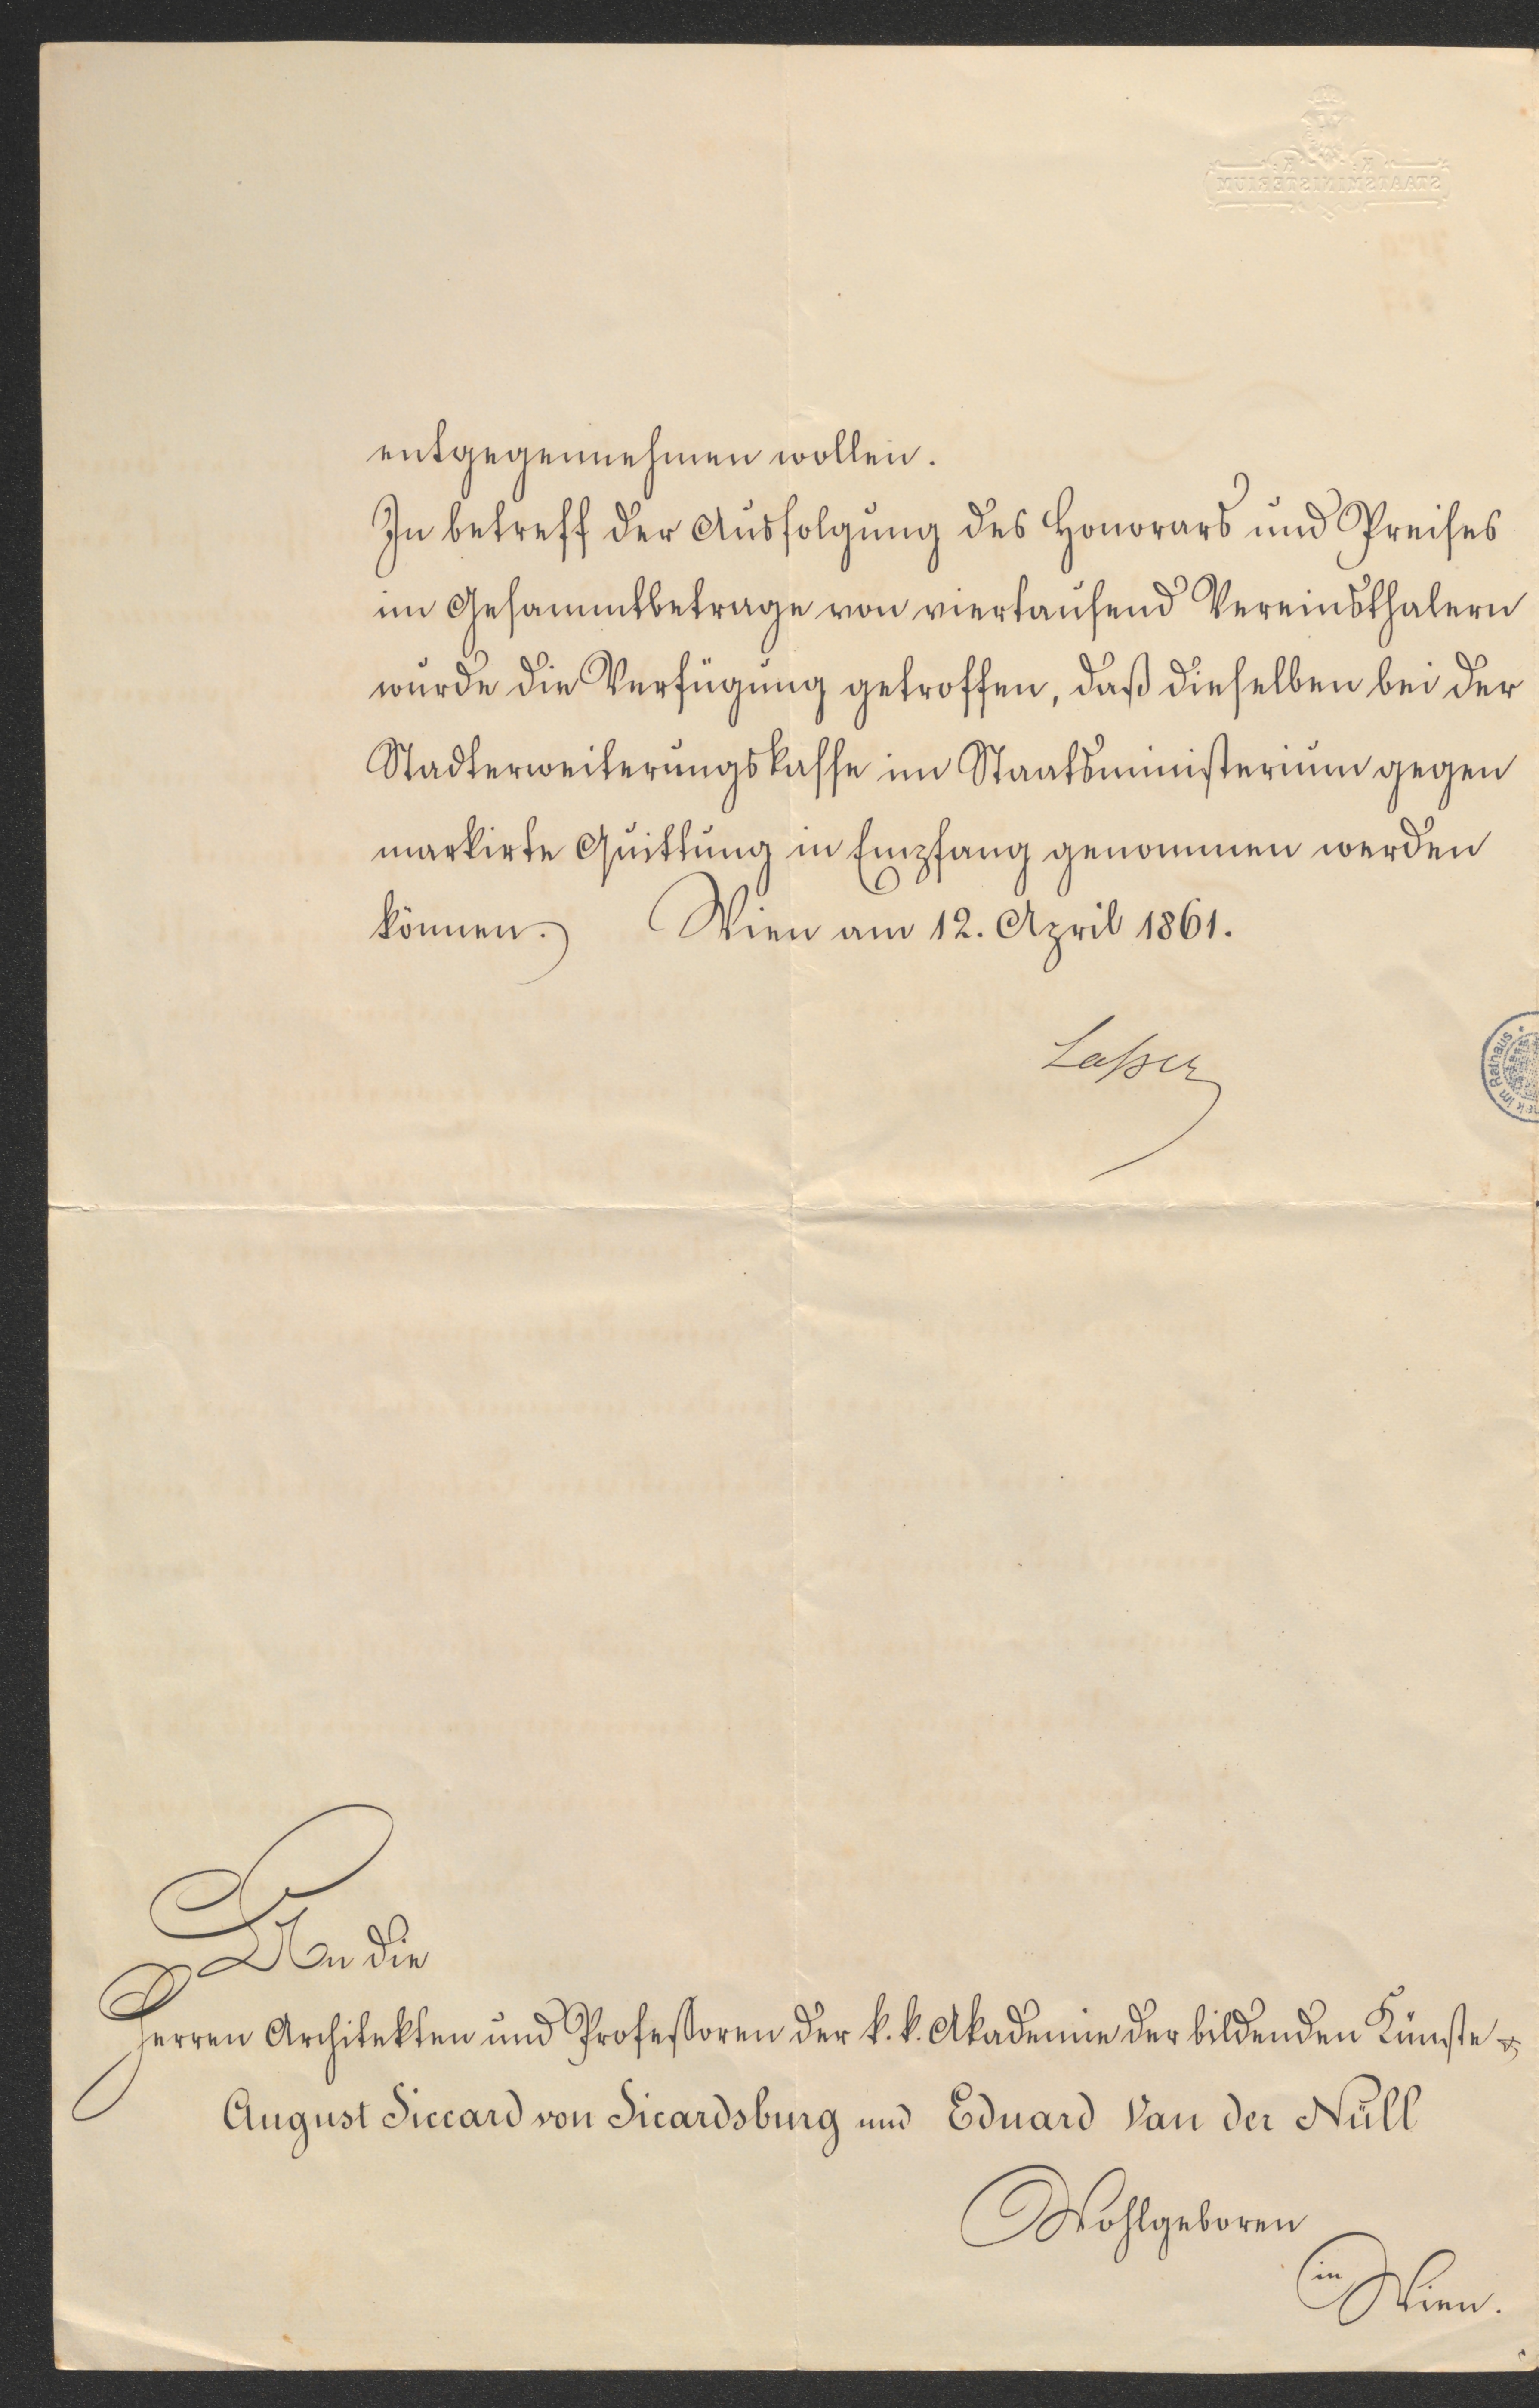 K. K.
STAATSMINISTERIUM
entgegennehmen wollen.
In betreff der Ausfolgung des Honorars und Preises
im Gesammtbetrage von viertausend Vereinsthalern
wurde die Verfügung getroffen, daß dieselben bei der
Stadterweiterungskasse im Staatsministerium gegen
markirte Quittung in Empfang genommen werden
können. Wien am 12. April 1861.
Lasser
im Rathaus
An die
Herren Architekten und Professoren der k. k. Akademie der bildenden Künste
August Siccard von Sicardsburg und Eduard Van der Nüll
Wohlgeboren
in Wien.